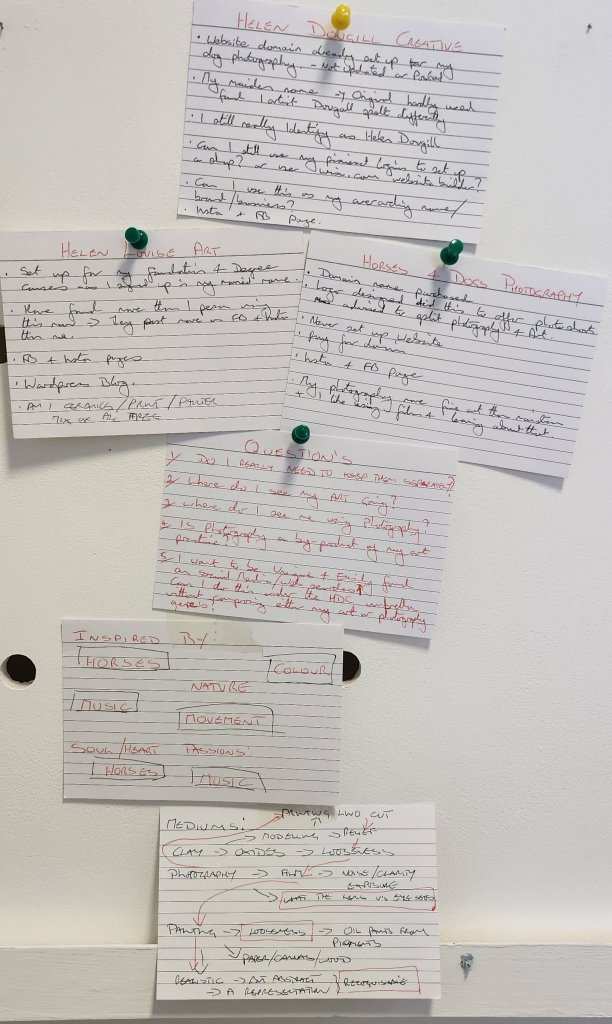 HELEN DOUGILL CREATIVE
• Website domain already set up for my
dog photography. – Not updated or Posted
• My maiden name → Original hardly used
found 1 artist Dougall spelt differently
• I still really Identify as Helen Dougill
• Can I still use my pinterest logins to set up
a shop? or use wix.com website builder?
• Can I use this as my overarching name/
brand/business?
• Insta + FB Page.
HELEN LOUISE ART
• Set up for my foundation + Degree
courses as I signed up in my married name.
• Have found more than 1 person using
this name → they post more on FB + Insta
than me.
• FB + Insta pages
• Wordpress Blog.
• AM I CERAMICS/PRINT/PAINTER
MIX OR ALL THREE
HORSES & DOGS PHOTOGRAPHY
• Domain name purchased
• Logo designed did this to offer photoshoots
advised to split photography + Art.
• Never set up Website
• Pay for domain
• Insta + FB page
• My photography more fine art than
+ I like using films + learning about that
QUESTION'S
1/ DO I REALLY NEED TO KEEP THEM SEPARATE?
2/ Where do I see my ART Going?
3/ where do I see me using Photography?
4/ Is Photography a by-product of my art
practice?
5/ I want to be Unique + Easily found
on Social Media/web searches
Can I do this under the HDC umbrella
without comprising either my art or photography
INSPIRED BY:
HORSES
COLOUR
NATURE
MUSIC
MOVEMENT
SOUL/HEART PASSIONS:
HORSES
MUSIC
PRINTING LINO CUT
MEDIUMS:
→ MODELLING → RELIEF
CLAY → OXIDES → LOOSENESS
PHOTOGRAPHY → FILM → NOISE/CLARITY
EXPOSURE
→ WHAT THE LENS VS EYE SEES
PAINTING → LOOSENESS → OIL PAINTS FROM
PIGMENTS
PAPER/CANVAS/WOOD
REALISTIC → BUT ABSTRACT
RECOGNISABLE
→ A REPRESENTATION